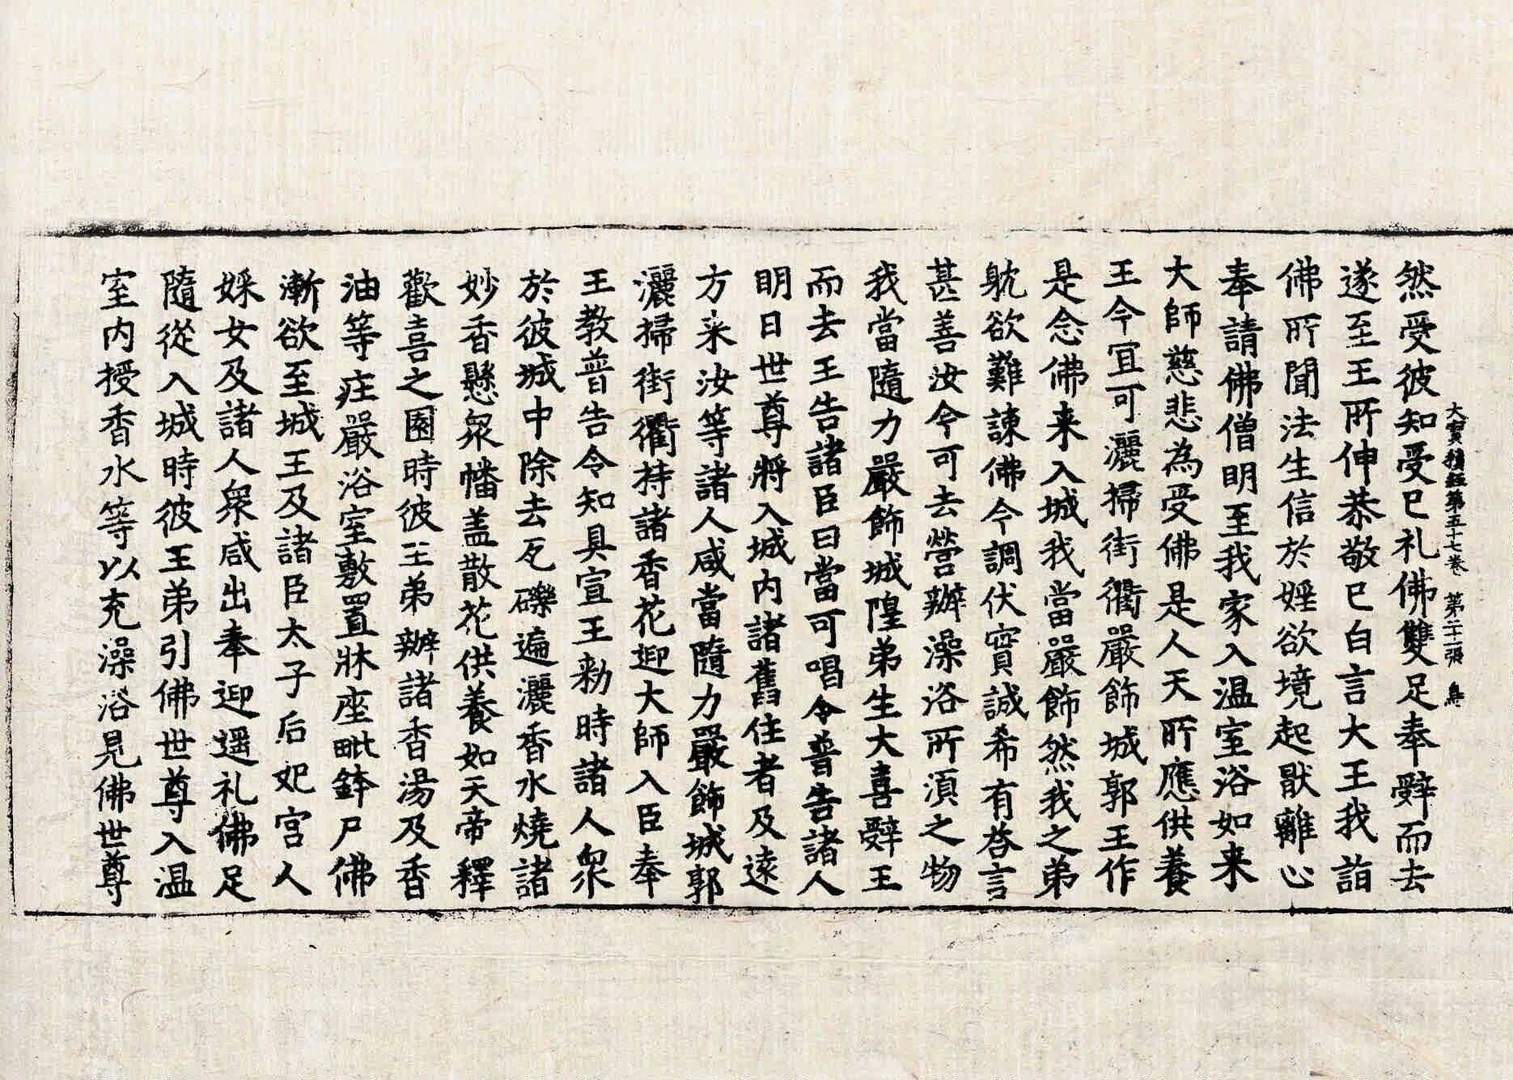 大寶積經第五十七卷 第二十二張 鳥
然受彼知受已礼佛雙足奉辭而去
遂至王所伸恭敬已白言大王我詣
佛所聞法生信於婬欲境起猒離心
奉請佛僧明至我家入温室浴如来
大師慈悲為受佛是人天所應供養
王今冝可灑掃街衢嚴飾城郭王作
是念佛来入城我當嚴飾然我之弟
躭欲難諫佛今調伏實誠希有荅言
甚善汝今可去營辦澡浴所湏之物
我當隨力嚴飾城隍弟生大喜辭王
而去王告諸臣曰當可唱令普告諸人
明日世尊將入城内諸舊住者及遠
方来汝等諸人咸當隨力嚴飾城郭
灑掃街衢持諸香花迎大師入臣奉
王教普告令知具宣王勑時諸人衆
於彼城中除去瓦礫遍灑香水燒諸
妙香懸衆幡盖散花供養如天帝釋
歡喜之園時彼王弟辦諸香湯及香
油等庄嚴浴室敷置牀座毗鉢尸佛
漸欲至城王及諸臣太子后妃宫人
婇女及諸人衆咸出奉迎遥礼佛足
隨從入城時彼王弟引佛世尊入温
室内授香水等以充澡浴見佛世尊